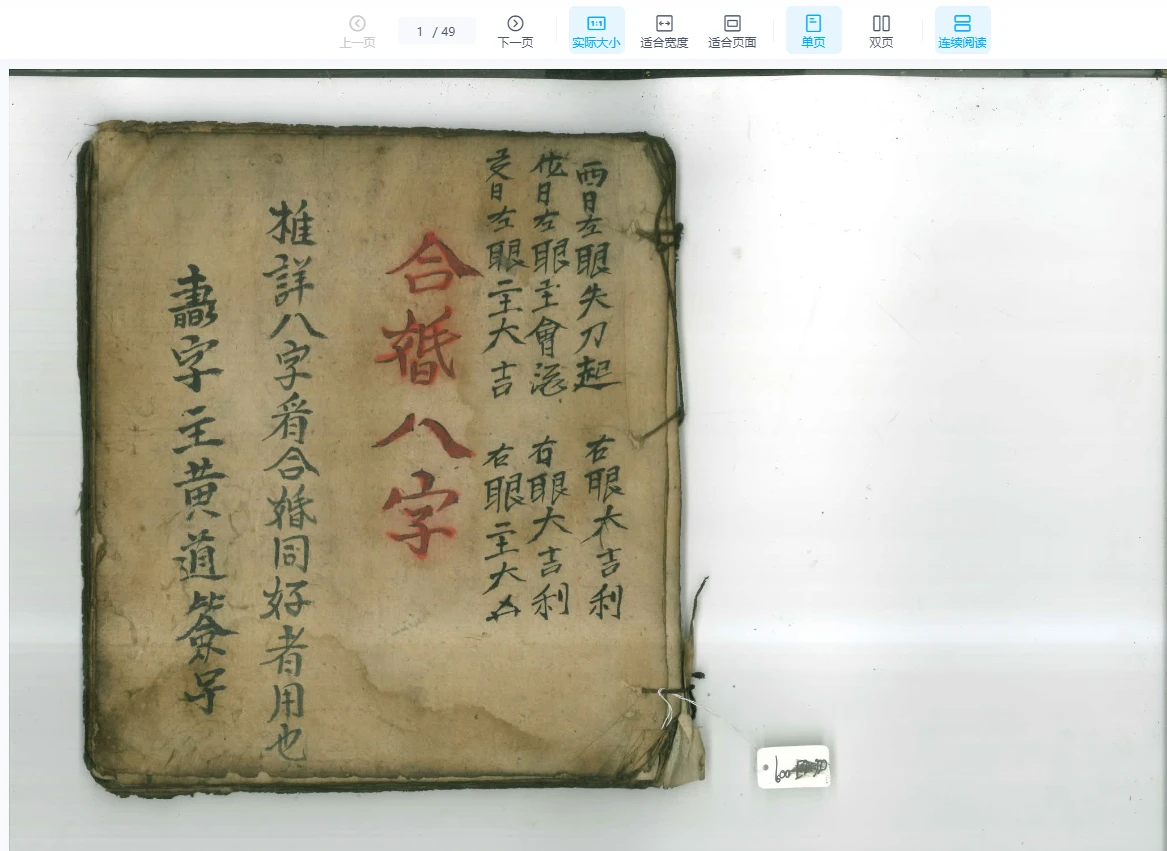 上一页
1 / 49
下一页
实际大小
适合宽度
适合页面
单页
双页
连续阅读
酉日左眼失刀起 右眼大吉利
日左眼主會 右眼大吉利
日左眼主大吉 右眼主大
合婚八字
推詳八字看合婚同好者用也
字主黃道簽
600